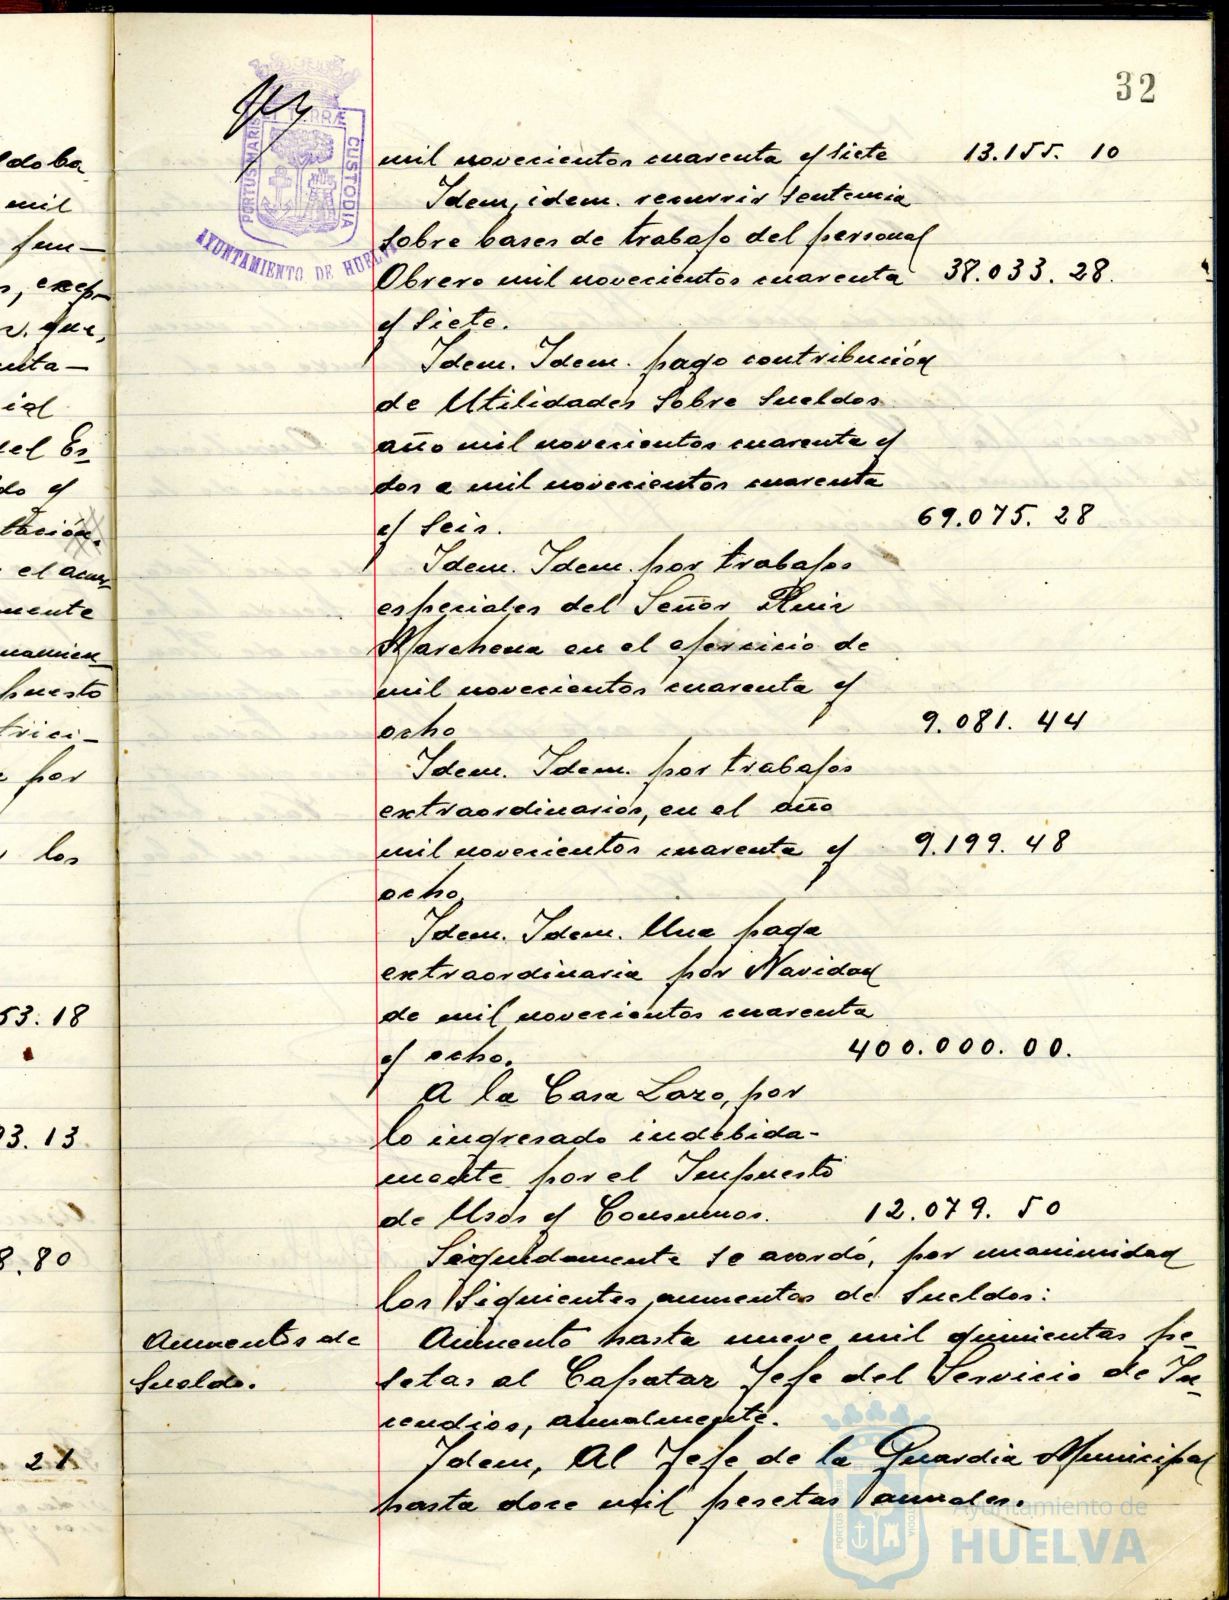 32
PORTUS MARIS ET TERRÆ CUSTODIA
AYUNTAMIENTO DE HUELVA
doba
mil
fun—
s, excep—
que,
enta—
ial
del Es
do y
tación.
el acuer
mente
namien
puesto
trici—
por
los
53.18
93.13
8.80
21
mil novecientos cuarenta y siete 13.155. 10
Idem, idem. recurrir sentencia
sobre bases de trabajo del personal
Obrero mil novecientos cuarenta 38.033. 28.
y siete.
Idem. Idem. pago contribución
de Utilidades sobre sueldos
año mil novecientos cuarenta y
dos a mil novecientos cuarenta
y seis. 69.075. 28
Idem. Idem. por trabajos
especiales del Señor Ruiz
Marchena en el ejercicio de
mil novecientos cuarenta y
ocho 9.081. 44
Idem. Idem. por trabajos
extraordinarios, en el año
mil novecientos cuarenta y 9.199. 48
ocho.
Idem. Idem. Una paga
extraordinaria por Navidad
de mil novecientos cuarenta
y ocho. 400.000. 00.
A la Casa Lazo, por
lo ingresado indebida-
mente por el Impuesto
de Usos y Consumos. 12.079. 50
Seguidamente se acordó, por unanimidad
los siguientes aumentos de sueldos:
Aumentos de
Sueldo.
Aumento hasta nueve mil quinientas pe-
setas al Capataz Jefe del Servicio de In-
cendios, anualmente.
Idem, Al Jefe de la Guardia Municipal
hasta doce mil pesetas anuales.
Ayuntamiento de
HUELVA